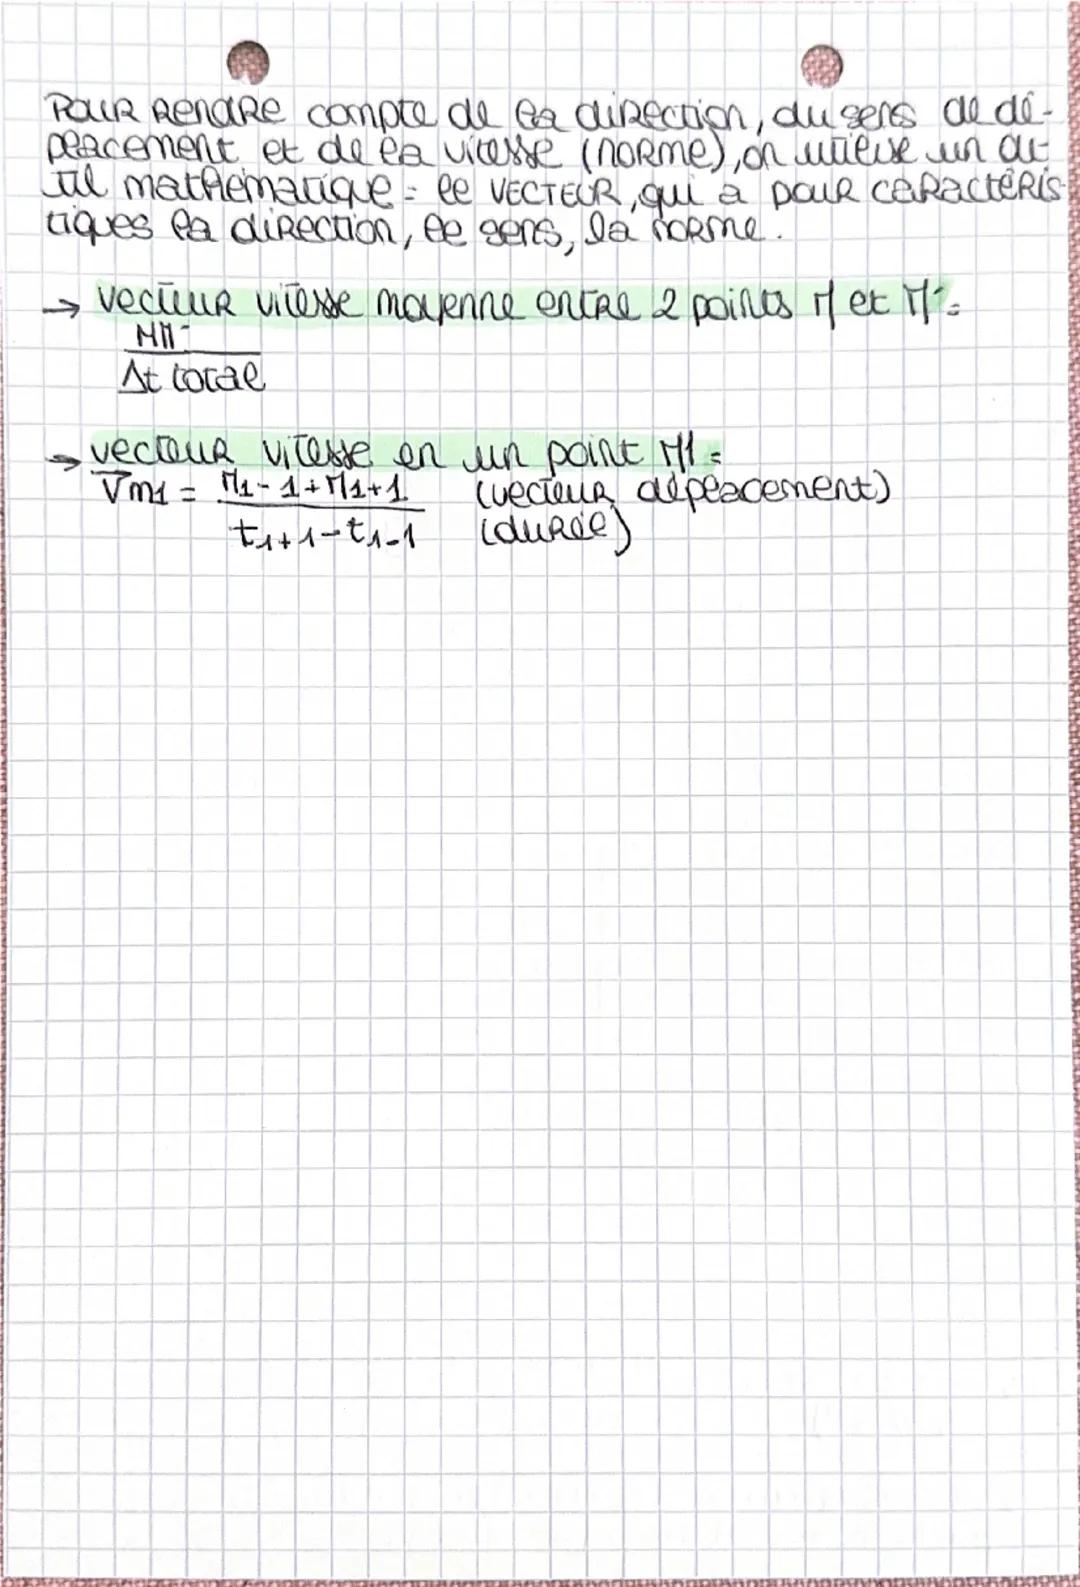 Pour rendre compte de la direction, du sens de dé-
placement et de la vitesse (norme), on utilise un ou-
til mathématique = le VECTEUR, qui a pour caractéris-
tiques la direction, le sens, la norme.
→ vecteur vitesse moyenne entre 2 points M et M' =
MM'
Δt total
→ vecteur vitesse en un point M1 =
Vm1 = M1-1+M1+1 (vecteur déplacement)
t1+1-t1-1 (durée)